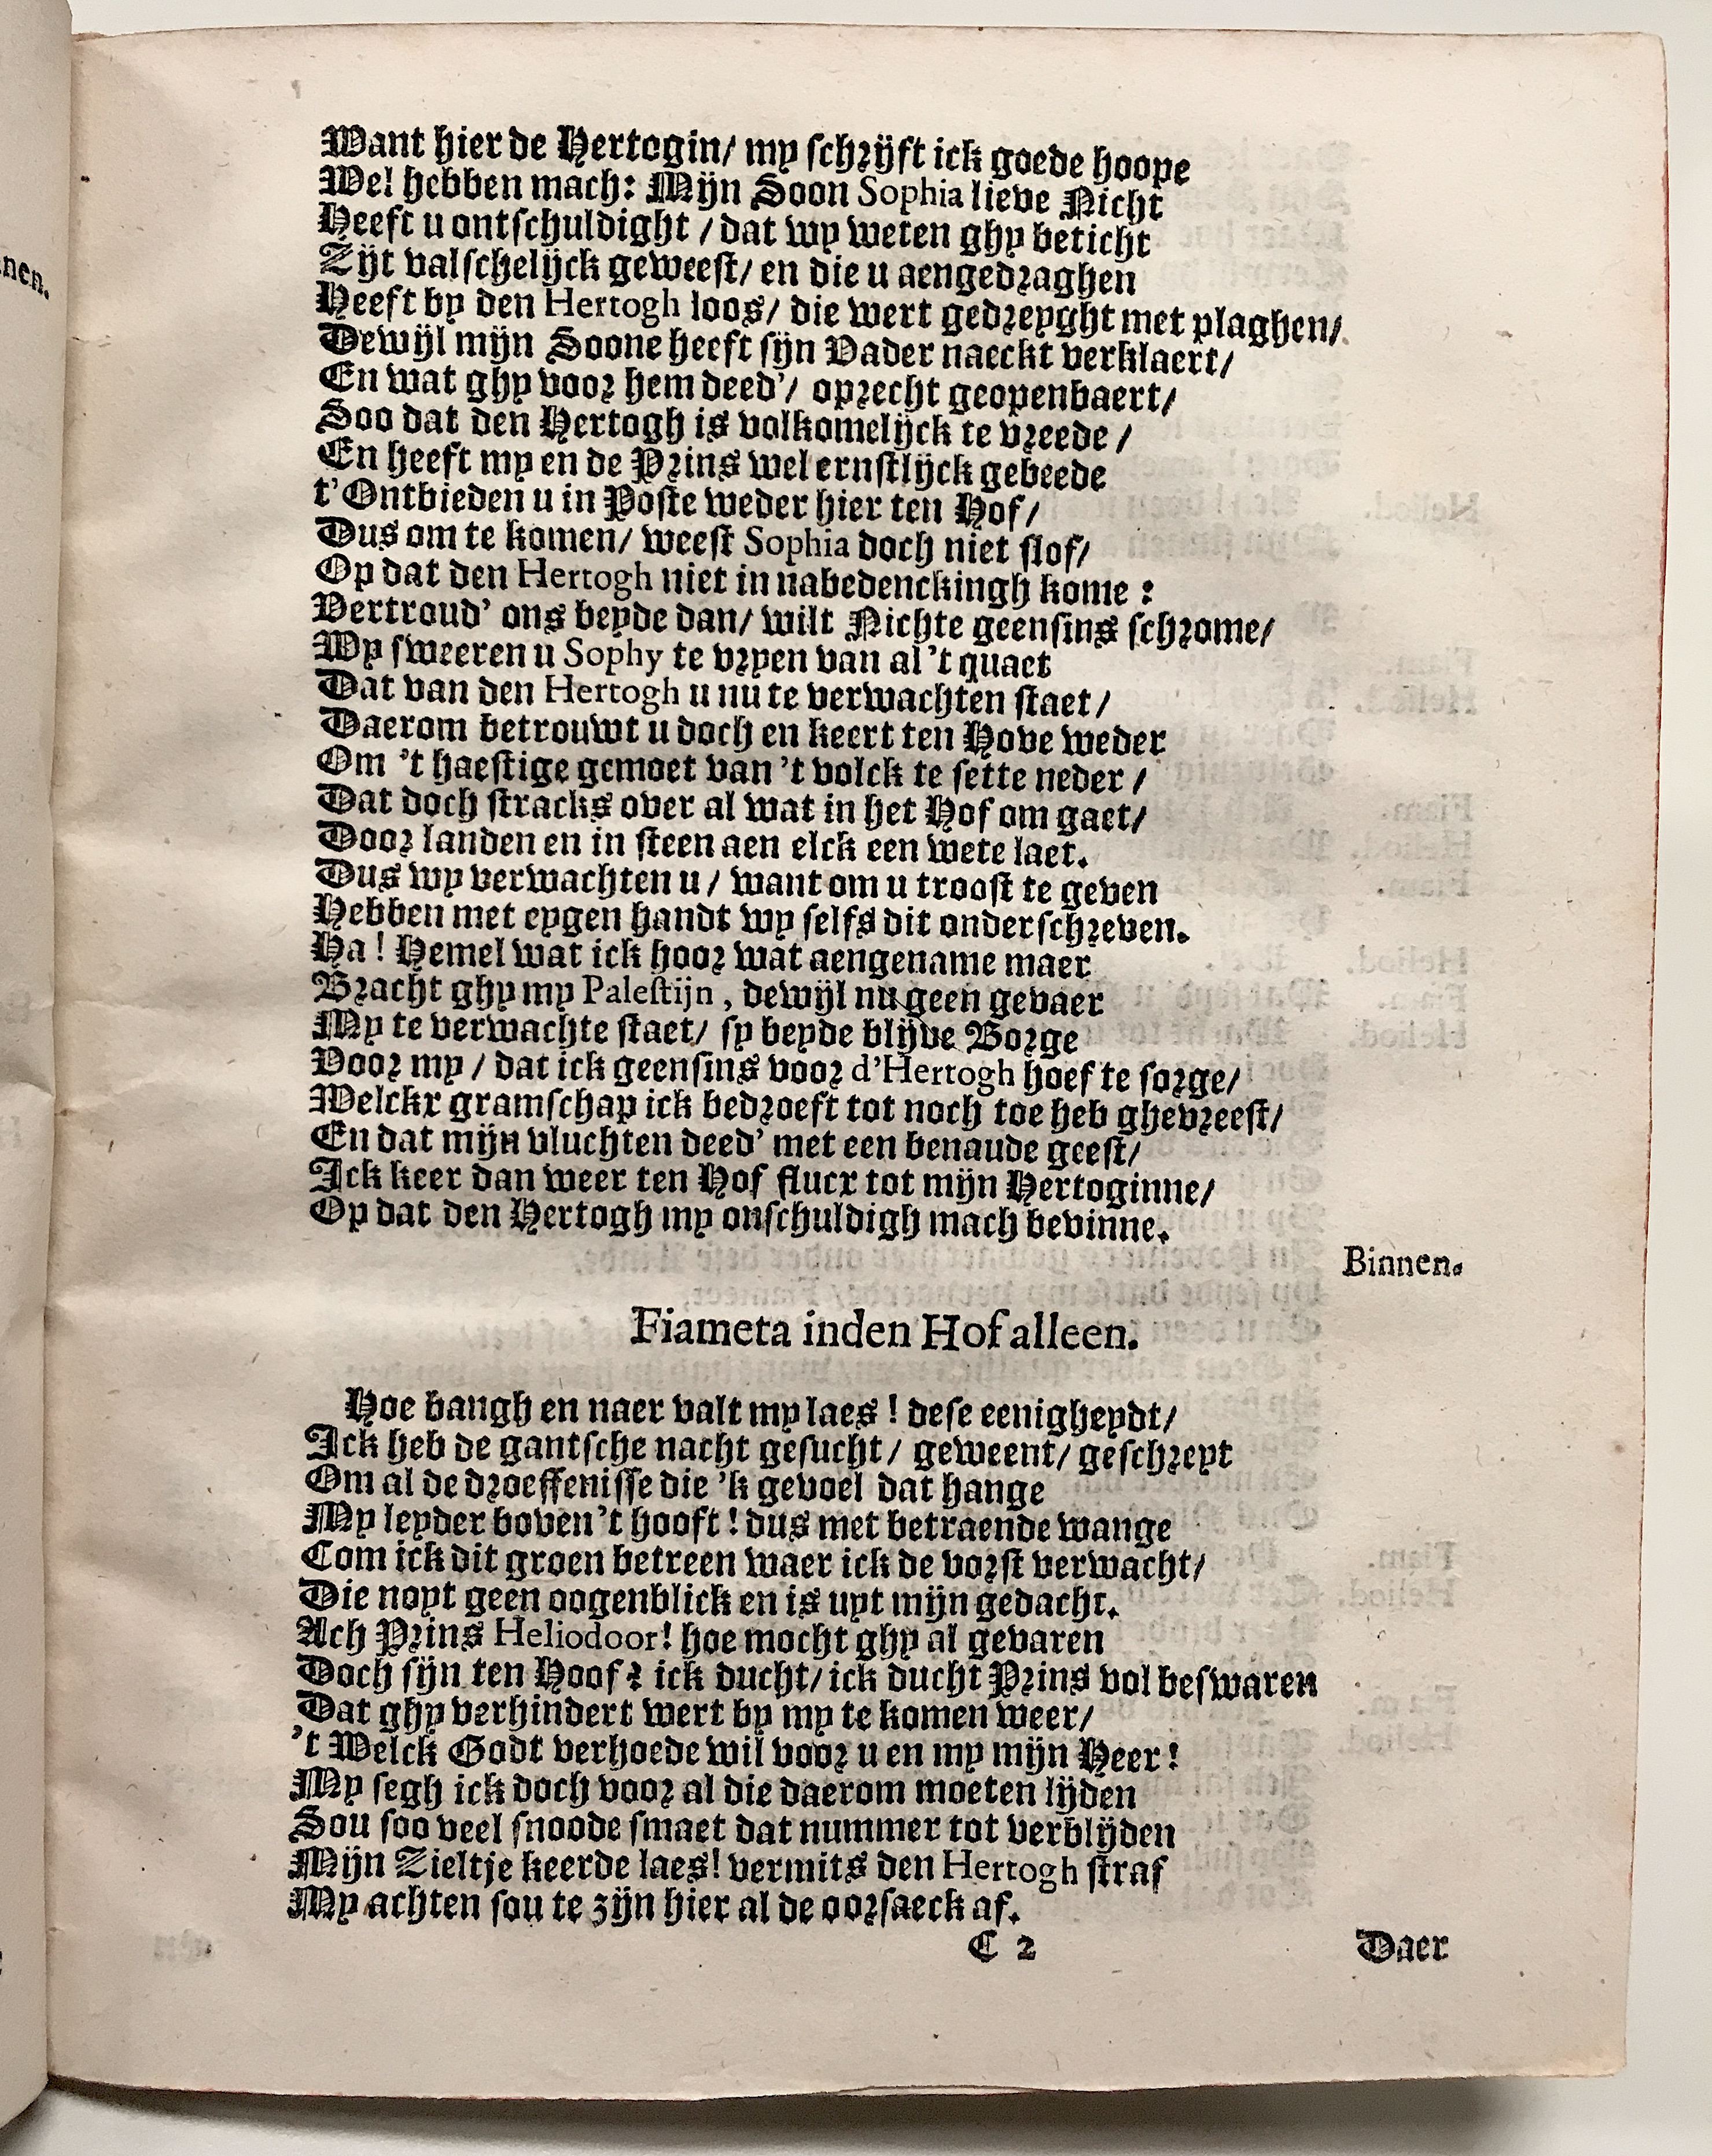 nen.
Want hier de Hertogin/ my schrijft ick goede hoope
Wel hebben mach: Mijn Soon Sophia lieve Nicht
Heeft u ontschuldight / dat wy weten ghy beticht
Zijt valschelijck geweest/ en die u aengedraghen
Heeft by den Hertogh loos/ die wert gedreyght met plaghen/
Dewijl mijn Soone heeft sijn Vader naeckt verklaert/
En wat ghy voor hem deed'/ oprecht geopenbaert/
Soo dat den Hertogh is volkomelijck te vreede /
En heeft my en de Prins wel ernstlijck gebeede
t'Ontbieden u in Poste weder hier ten Hof/
Dus om te komen/ weest Sophia doch niet slof/
Op dat den Hertogh niet in nabedenckingh kome :
Vertroud' ons beyde dan/ wilt Nichte geensins schrome/
Wy sweeren u Sophy te vryen van al 't quaet
Dat van den Hertogh u nu te verwachten staet/
Daerom betrouwt u doch en keert ten Hove weder
Om 't haestige gemoet van 't volck te sette neder /
Dat doch stracks over al wat in het Hof om gaet/
Door landen en in steen aen elck een wete laet.
Dus wy verwachten u / want om u troost te geven
Hebben met eygen handt wy selfs dit onderschreven.
Ha ! Hemel wat ick hoor wat aengename maer
Bracht ghy my Palestijn , dewijl nu geen gevaer
My te verwachte staet/ sy beyde blijve Borge
Voor my / dat ick geensins voor d'Hertogh hoef te sorge/
Welckr gramschap ick bedroeft tot noch toe heb ghevreest/
En dat mijn vluchten deed' met een benaude geest/
Ick keer dan weer ten Hof flucx tot mijn Hertoginne/
Op dat den Hertogh my onschuldigh mach bevinne.
Binnen.
Fiameta inden Hof alleen.
Hoe bangh en naer valt my laes ! dese eenigheydt/
Ick heb de gantsche nacht gesucht/ geweent/ geschreyt
Om al de droeffenisse die 'k gevoel dat hange
My leyder boven 't hooft ! dus met betraende wange
Com ick dit groen betreen waer ick de vorst verwacht/
Die noyt geen oogenblick en is uyt mijn gedacht.
Ach Prins Heliodoor! hoe mocht ghy al gevaren
Doch sijn ten Hoof? ick ducht/ ick ducht Prins vol beswaren
Dat ghy verhindert wert by my te komen weer/
't Welck Godt verhoede wil voor u en my mijn Heer !
My segh ick doch voor al die daerom moeten lijden
Sou soo veel snoode smaet dat nummer tot verblijden
Mijn Zieltje keerde laes! vermits den Hertogh straf
My achten sou te zijn hier al de oorsaeck af.
C 2
Daer